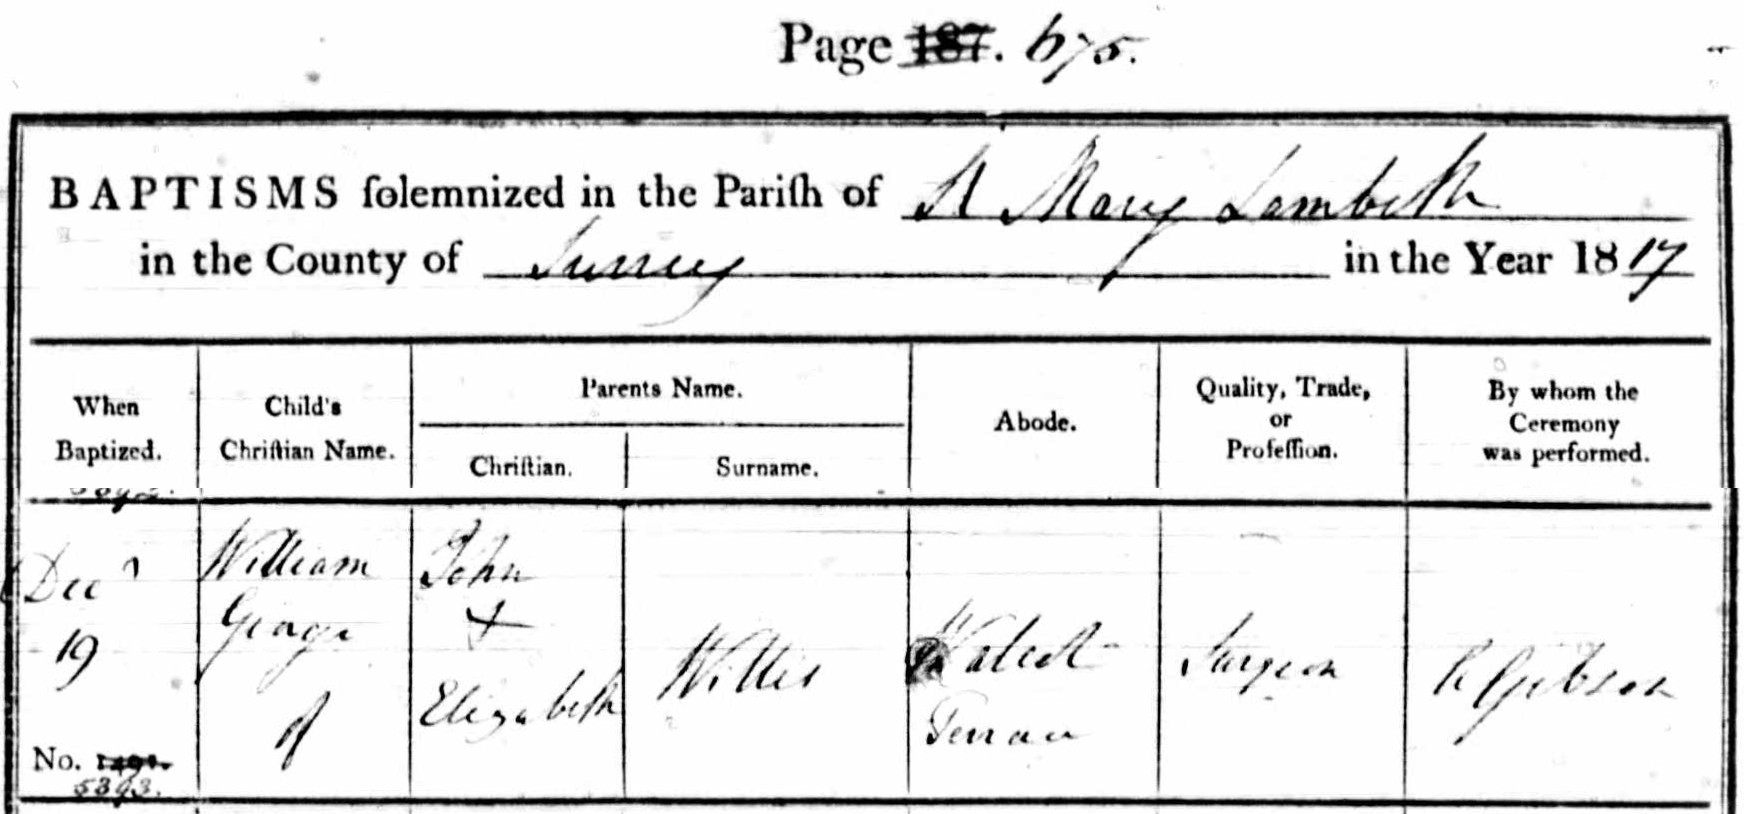 Page 187. 675.
BAPTISMS ſolemnized in the Pariſh of St Mary Lambeth
in the County of Surrey in the Year 1817
When
Baptized.
Child's
Chriſtian Name.
Parents Name.
Chriſtian.
Surname.
Abode.
Quality, Trade,
or
Profeſſion.
By whom the
Ceremony
was performed.
Decr
19
No. 1491.
5393.
William
George
of
John
+
Elizabeth
Willis
Walcot
Terrace
Surgeon
R Gibson